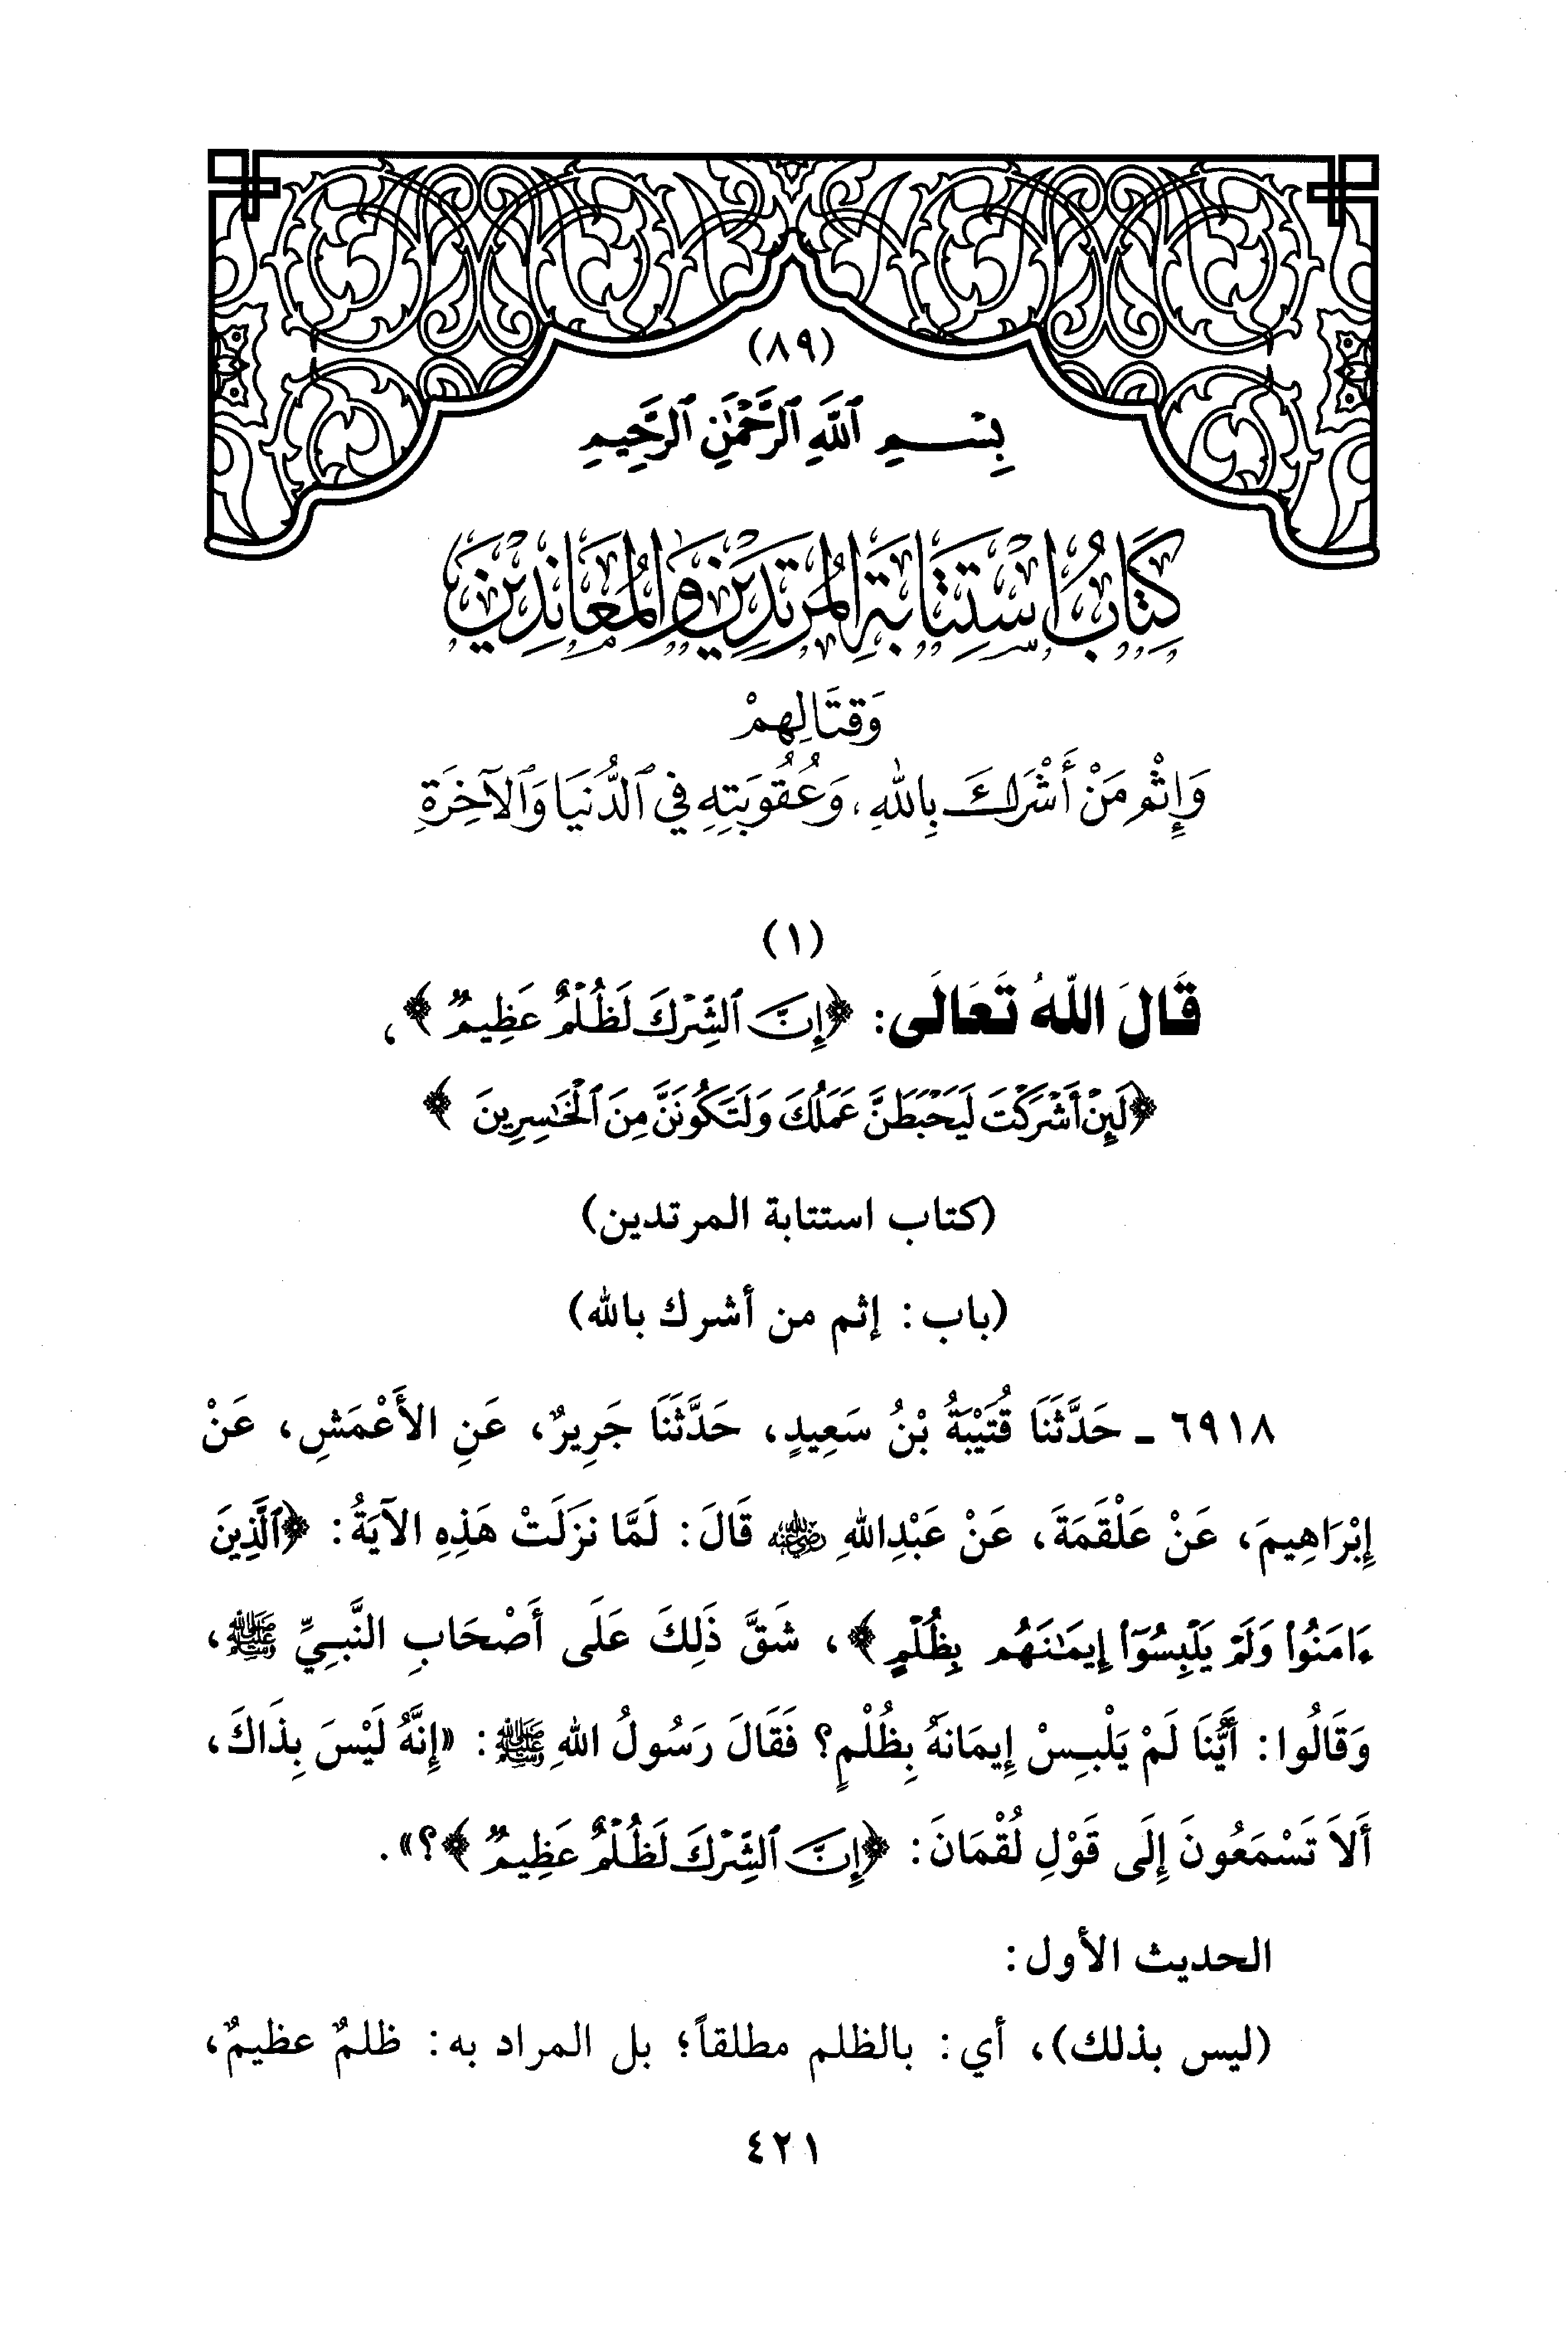 (٨٩)
بِسْمِ ٱللَّهِ ٱلرَّحْمَٰنِ ٱلرَّحِيمِ
كِتَابُ اسْتِتَابَةِ المُرتَدِينَ وَالمُعَانِدِيْنَ
وَقِتَالِهِمْ
وَإِثْمِ مَنْ أَشْرَكَ بِاللهِ، وَعُقُوبَتِهِ فِي ٱلدُّنْيَا وَٱلآخِرَةِ
(١)
قَالَ اللهُ تَعَالَى: ﴿إِنَّ ٱلشِّرْكَ لَظُلْمٌ عَظِيمٌ﴾،
﴿لَئِنْ أَشْرَكْتَ لَيَحْبَطَنَّ عَمَلُكَ وَلَتَكُونَنَّ مِنَ ٱلْخَٰسِرِينَ﴾
(كتاب استتابة المرتدين)
(باب: إثم من أشرك بالله)
٦٩١٨ ـ حَدَّثَنَا قُتَيْبَةُ بْنُ سَعِيدٍ، حَدَّثَنَا جَرِيرٌ، عَنِ الأَعْمَشِ، عَنْ
إِبْرَاهِيمَ، عَنْ عَلْقَمَةَ، عَنْ عَبْدِاللهِ رضي الله عنه قَالَ: لَمَّا نَزَلَتْ هَذِهِ الآيَةُ: ﴿ٱلَّذِينَ
ءَامَنُوا۟ وَلَمْ يَلْبِسُوٓا۟ إِيمَٰنَهُم بِظُلْمٍ﴾، شَقَّ ذَلِكَ عَلَى أَصْحَابِ النَّبِيِّ ﷺ،
وَقَالُوا: أَيُّنَا لَمْ يَلْبِسْ إِيمَانَهُ بِظُلْمٍ؟ فَقَالَ رَسُولُ اللهِ ﷺ: «إِنَّهُ لَيْسَ بِذَاكَ،
أَلاَ تَسْمَعُونَ إِلَى قَوْلِ لُقْمَانَ: ﴿إِنَّ ٱلشِّرْكَ لَظُلْمٌ عَظِيمٌ﴾؟».
الحديث الأول:
(ليس بذلك)، أي: بالظلم مطلقاً؛ بل المراد به: ظلمٌ عظيمٌ،
٤٢١